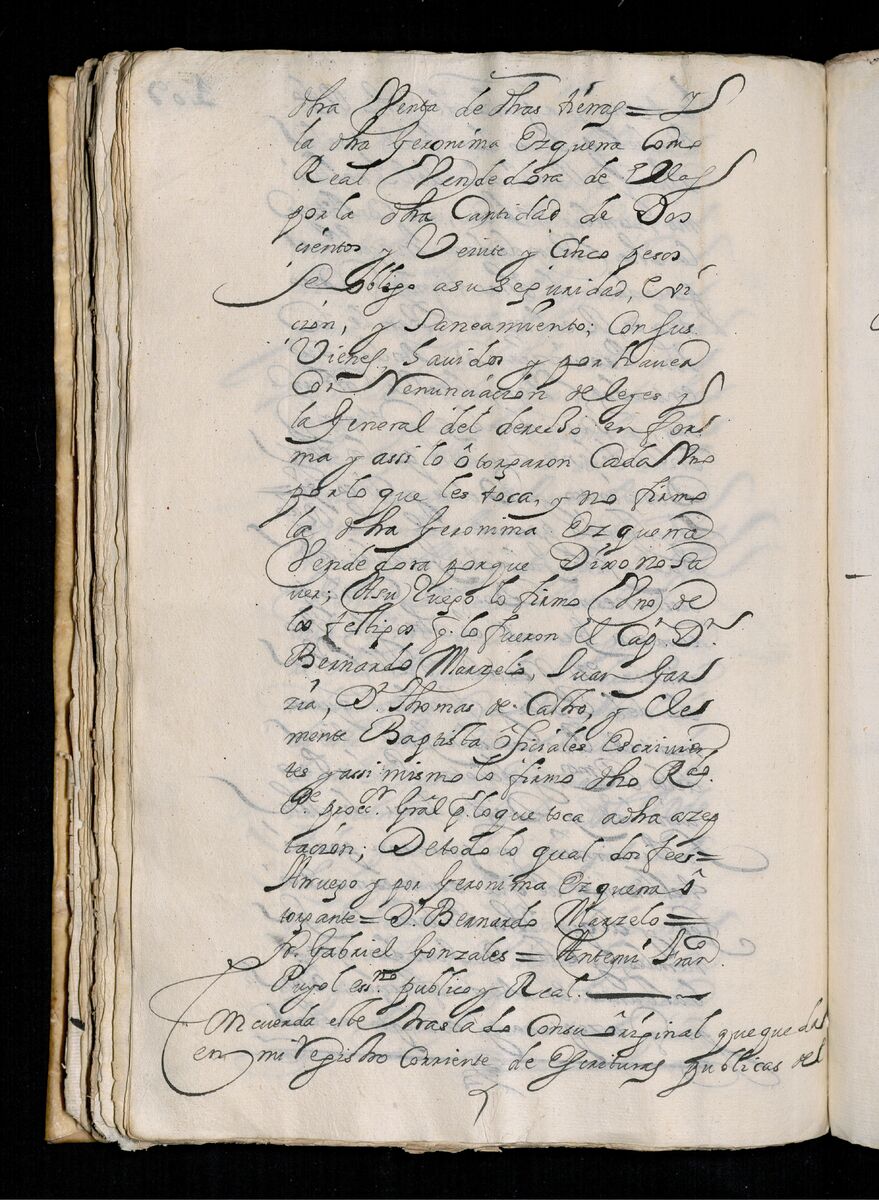 dha Venta de dhas tierras = Y
la dha Geronima Ezquerra Como
Real Vendedora de Ellas
por la dha Cantidad de Dos
cientos y Veinte y Cinco pesos
Se obligo a su seguridad, Evi
cion, y Saneamiento; Con sus
Vienes, havidos y por haver
Con Renunciacion de leyes y
la General del derecho en for
ma y assi lo otorgaron Cada Uno
por lo que les toca, y no firmo
la dha Geronima Ezquerra
Vendedora porque Dixo no sa
ver; A su Ruego lo firmo Uno de
los testigos q. lo fueron El Cap.n D.n
Bernardo Marzelo, Juan Gar
zia, D.n Thomas de Castro, y Cle
mente Baptista oficiales Escrivien
tes y assi mismo lo firmo dho R.do
P.e proc.r Gral p.r lo que toca a dha azep
tacion; De todo lo qual doi fee =
A ruego y por Geronima Ezquerra o
torgante = D.n Bernardo Marzelo =
Gabriel Gonzales = Ante mi Fran.co
Pujol ess.no publico y Real.
Concuerda este traslado Con su original que queda
en mi Registro Corriente de Escrituras publicas del